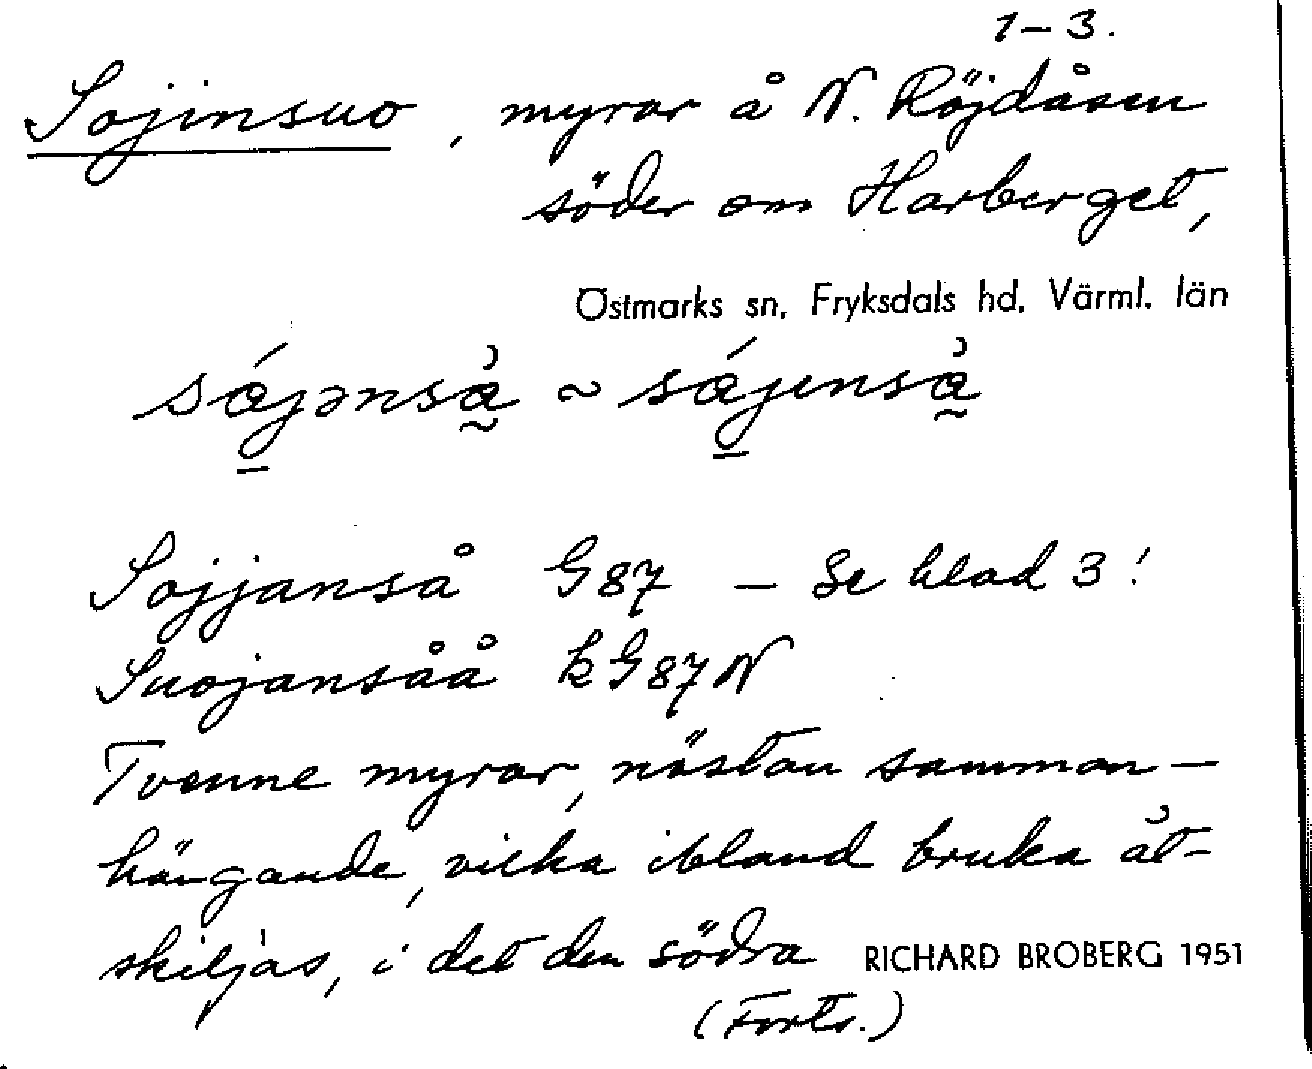 1–3.
Sojinsuo, myrar å N. Röjdåsen
söder om Harberget,
Östmarks sn, Fryksdals hd. Värml. län
sǽjənsæ̀ ~ sǽjɪnsæ̀
Sojjanså G87 – Se blad 3!
Suojansåå kG87N
Tvenne myrar, nästan samman-
hängande, vilka ibland bruka åt-
skiljas, i det den södra RICHARD BROBERG 1951
(Forts.)